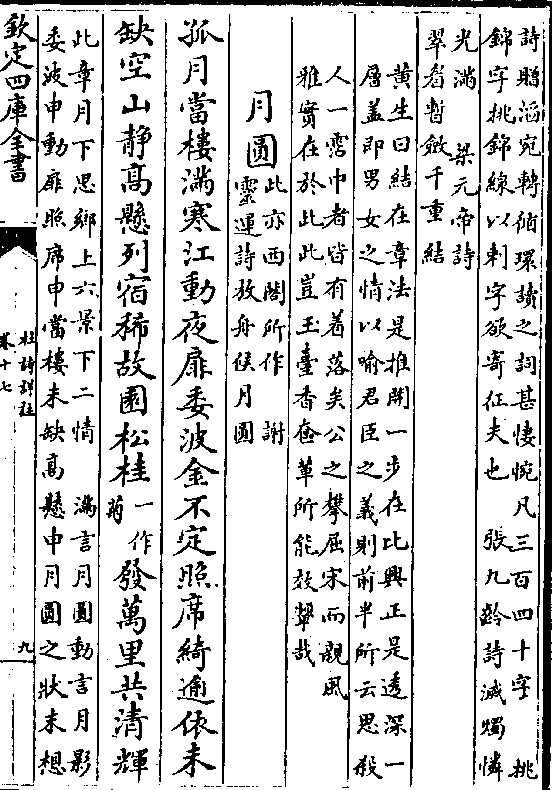 詩贈滔宛轉循環讀之詞甚悽惋凡三百四十字　挑
錦字挑錦線以刺字欲寄征夫也　張九齡詩滅燭憐
光滿　梁元帝詩
翠眉暫斂千重結
黃生曰結在章法是推開一步在比興正是透深一
層盖即男女之情以喻君臣之義則前半所云思殺
人一雲中者皆有着落矣公之攀屈宋而親風
雅實在於此此豈玉臺香奩軰所能效顰哉
月圓
此亦西閣所作　謝
靈運詩放舟候月圓
孤月當樓滿寒江動夜扉委波金不定照席綺逾依未
缺空山静髙懸列宿稀故園松桂
一作
菊
發萬里共清輝
此章月下思鄉上六景下二情　滿言月圓動言月影
委波申動扉照席申當樓未缺髙懸申月圓之狀末想
欽定四庫全書
杜詩詳註
卷十七
九